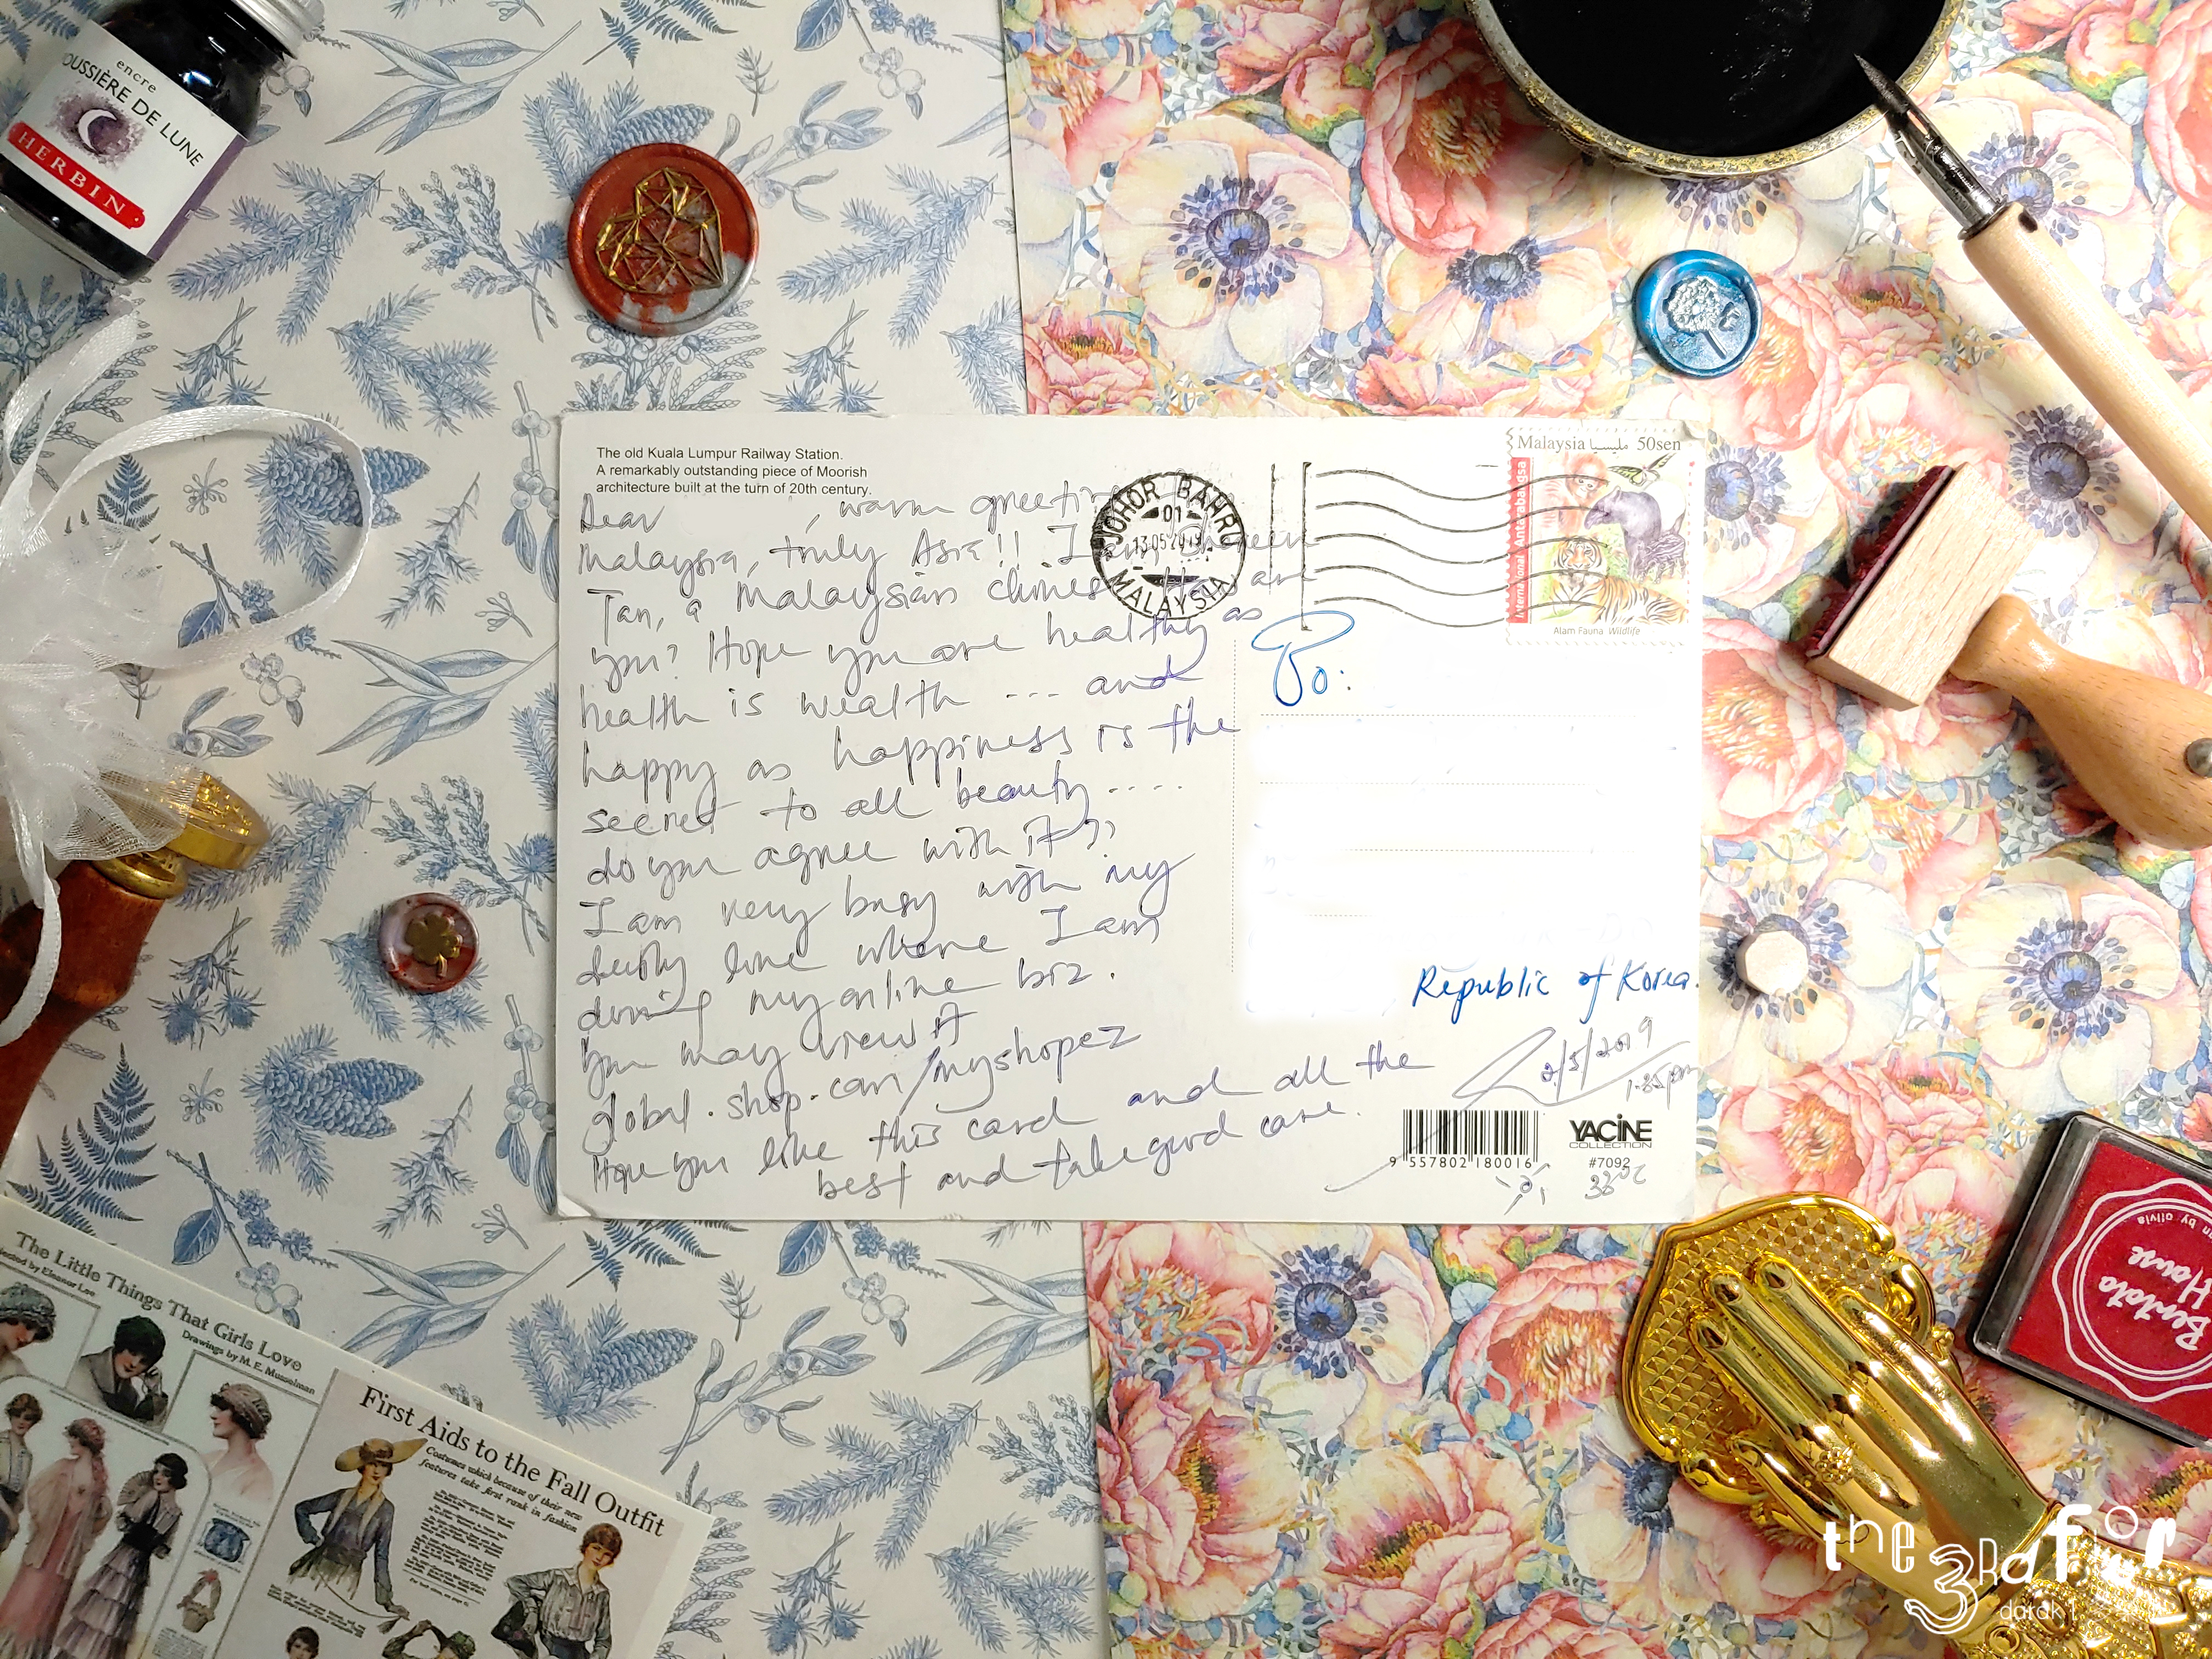 encre
OUSSIÈRE DE LUNE
HERBIN
The old Kuala Lumpur Railway Station.
A remarkably outstanding piece of Moorish
architecture built at the turn of 20th century.
Dear , warm greetin
Malaysia, truly Asia!! I am
Tan, a Malaysian chines are
you? Hope you are healthy as
health is wealth --- and
happy as happiness is the
secret to all beauty ....
do you agree with it??
I am very busy with my
line where I am
my online biz.
You may view it
global.shop.com/myshopez
Hope you like this card and all the
best and take good care.
JOHOR BAHRU
01
13 05 2019
MALAYSIA
Malaysia مليسيا 50sen
International Antarabangsa
Alam Fauna Wildlife
To:
Republic of Korea.
2/5/2019
1.25pm
9 557802 180016
YACINE
COLLECTION
#7092
33°C
The Little Things That Girls Love
Drawings by M. E. Musselman
First Aids to the Fall Outfit
Costumes which because of their new
features take first rank in fashion
Bentoto
House
the
3Rafür
darak